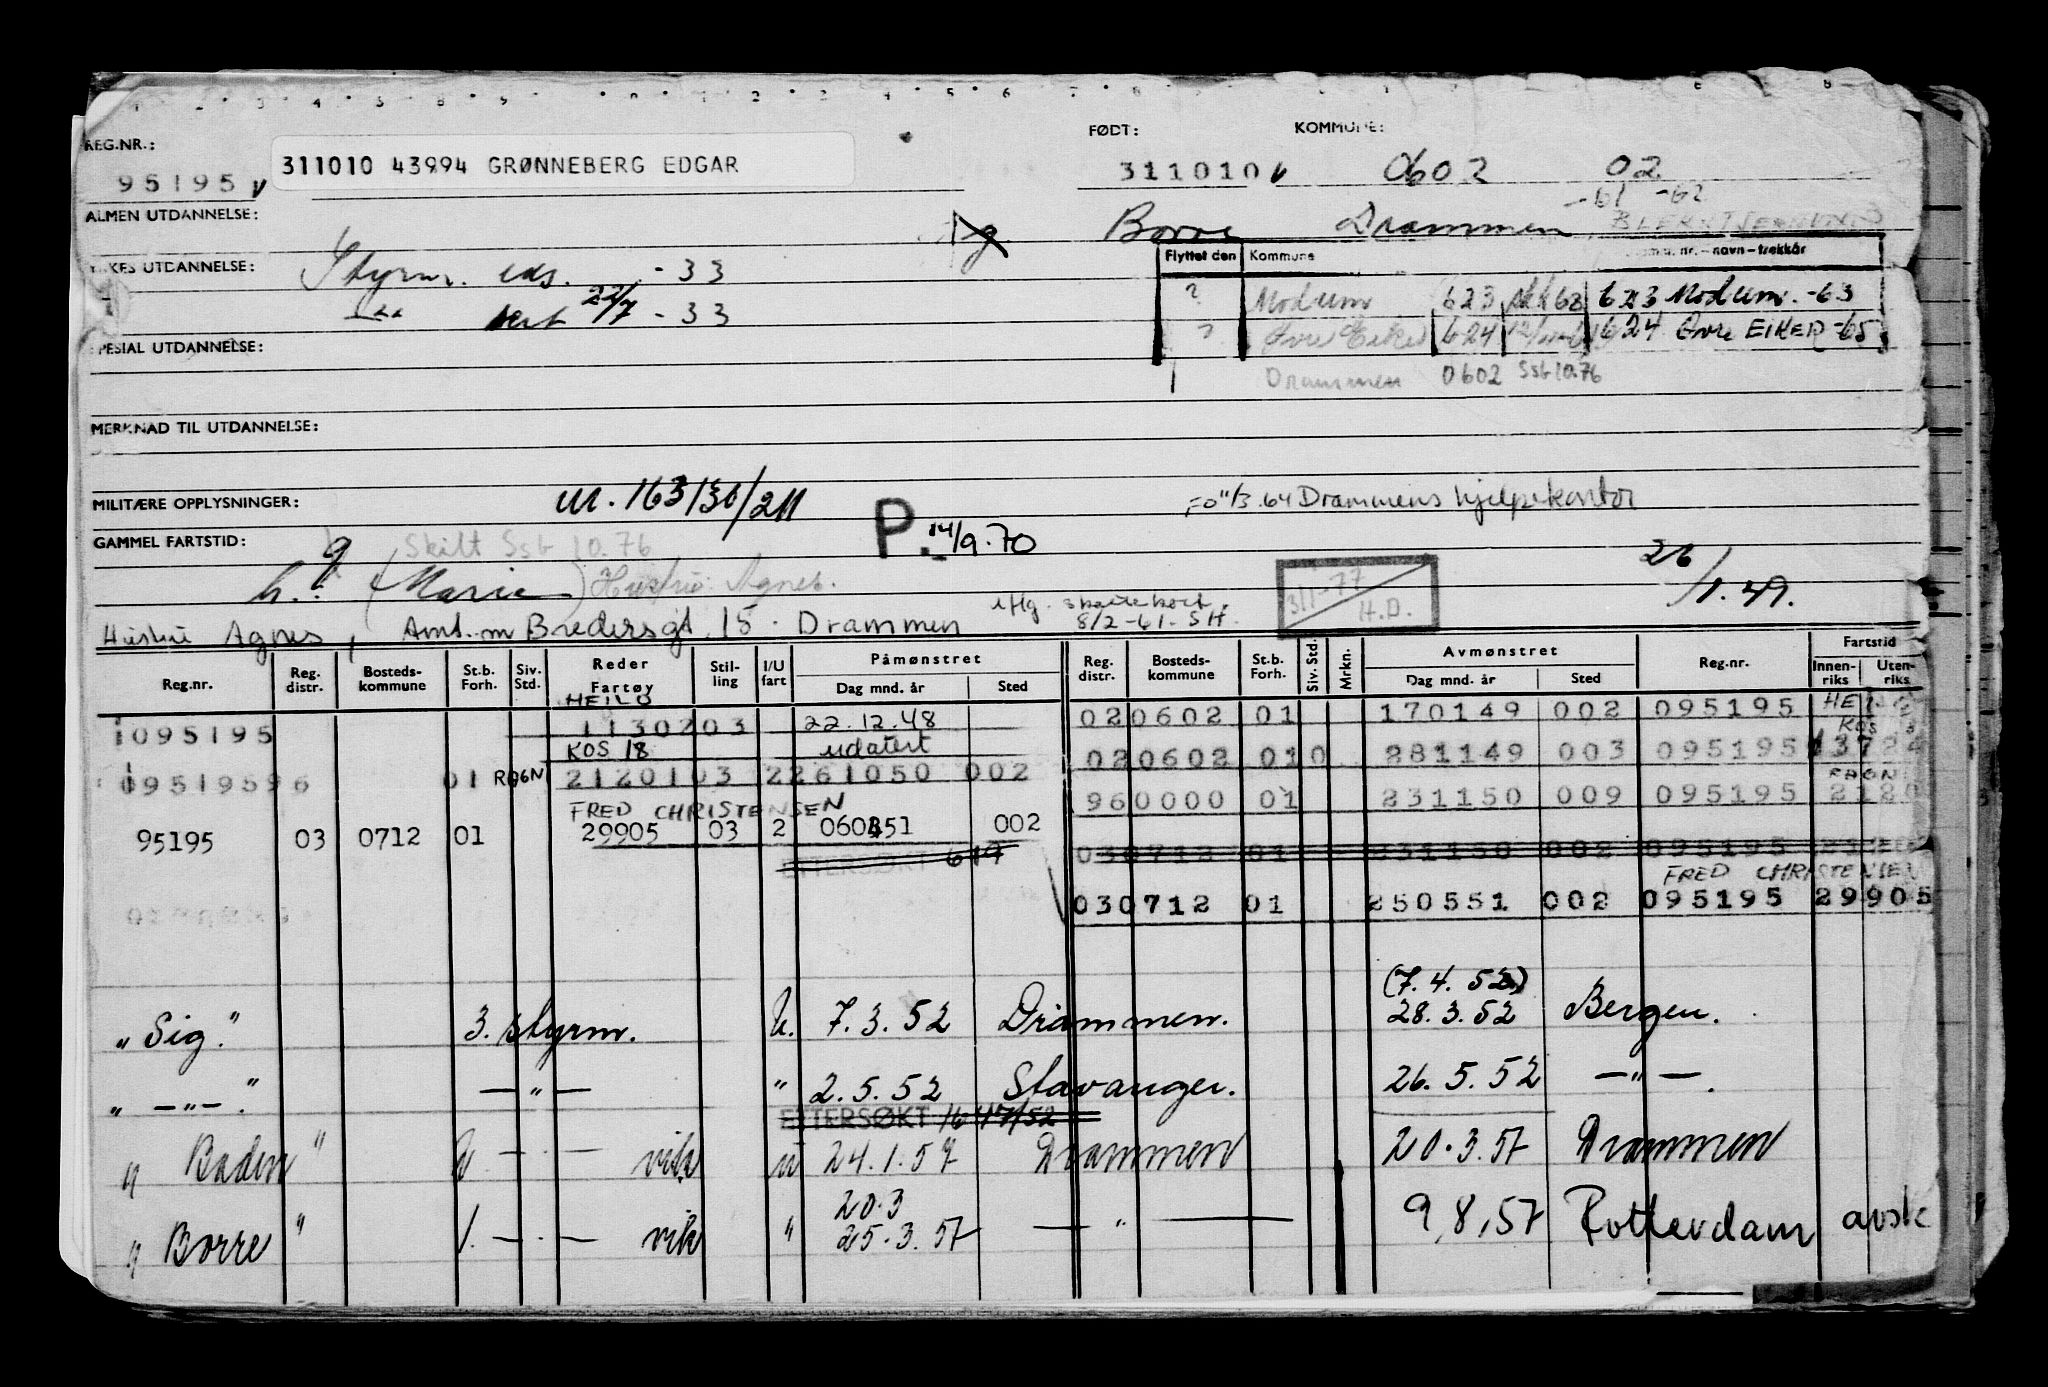 REG.NR.: FØDT: KOMMUNE:
95195 v 311010 43994 GRØNNEBERG EDGAR 311010 v 0602 02
-61 -62
ALMEN UTDANNELSE: g Borre Drammen
Flyttet den Kommune navn-trekkår
YRKES UTDANNELSE: Styrm. eks. -33
? Modum 623 62 623 Modum. -63
sert 22/7 - 33
? Øvre Eiker 624 624 Øvre EIKER -65
SPESIAL UTDANNELSE:
Drammen 0602 Ssb 10.76
MERKNAD TIL UTDANNELSE:
MILITÆRE OPPLYSNINGER: M. 163136/211 P. 14/9.70 FO 11/3.64 Drammens hjelpekontor
GAMMEL FARTSTID: g Skilt Ssb 10.76
h.: (Marie) Hustru: Agnes. 311-77 H.D. 26/1.49.
iflg. skattekort 8/2-61. SH.
Hustru Agnes, Amt.m Bredersgt. 15. Drammen
Reg.nr. Reg. distr. Bosteds- kommune St.b. Forh. Siv. Std. Reder Fartøy Stil- ling I/U fart Påmønstret Dag mnd. år Sted Reg. distr. Bosteds- kommune St.b. Forh. Siv. Std. Mrkn. Avmønstret Dag mnd. år Sted Reg.nr. Fartstid Innen- riks Uten- riks
HEILO
1095195 1130203 22.12.48 020602 01 170149 002 095195
KOS 18 udatert
020602 010 281149 003 095195 13724
01 RAGN 2120103 2261050 002
RAGN
960000 01 231150 009 095195 2120
FRED CHRISTENSEN
95195 03 0712 01 29905 03 2 060451 002
EFTERSØKT 619 030712 01 231150 002 095195
FRED CHRISTENSEN
030712 01 250551 002 095195 29905
(7.4.52)
"Sig." 3. styrm. U. 7.3.52 Drammen. 28.3.52 Bergen.
" —"—." —"— " 2.5.52 Stavanger. 26.5.52 —"—.
EFTERSØKT 16 4/7/52
"Baden" vik u 24.1.57 Drammen 20.3.57 Drammen
20.3
"Borre" 1. —.— vik " 25.3.57 —"— 9,8,57 Rotterdam avsk